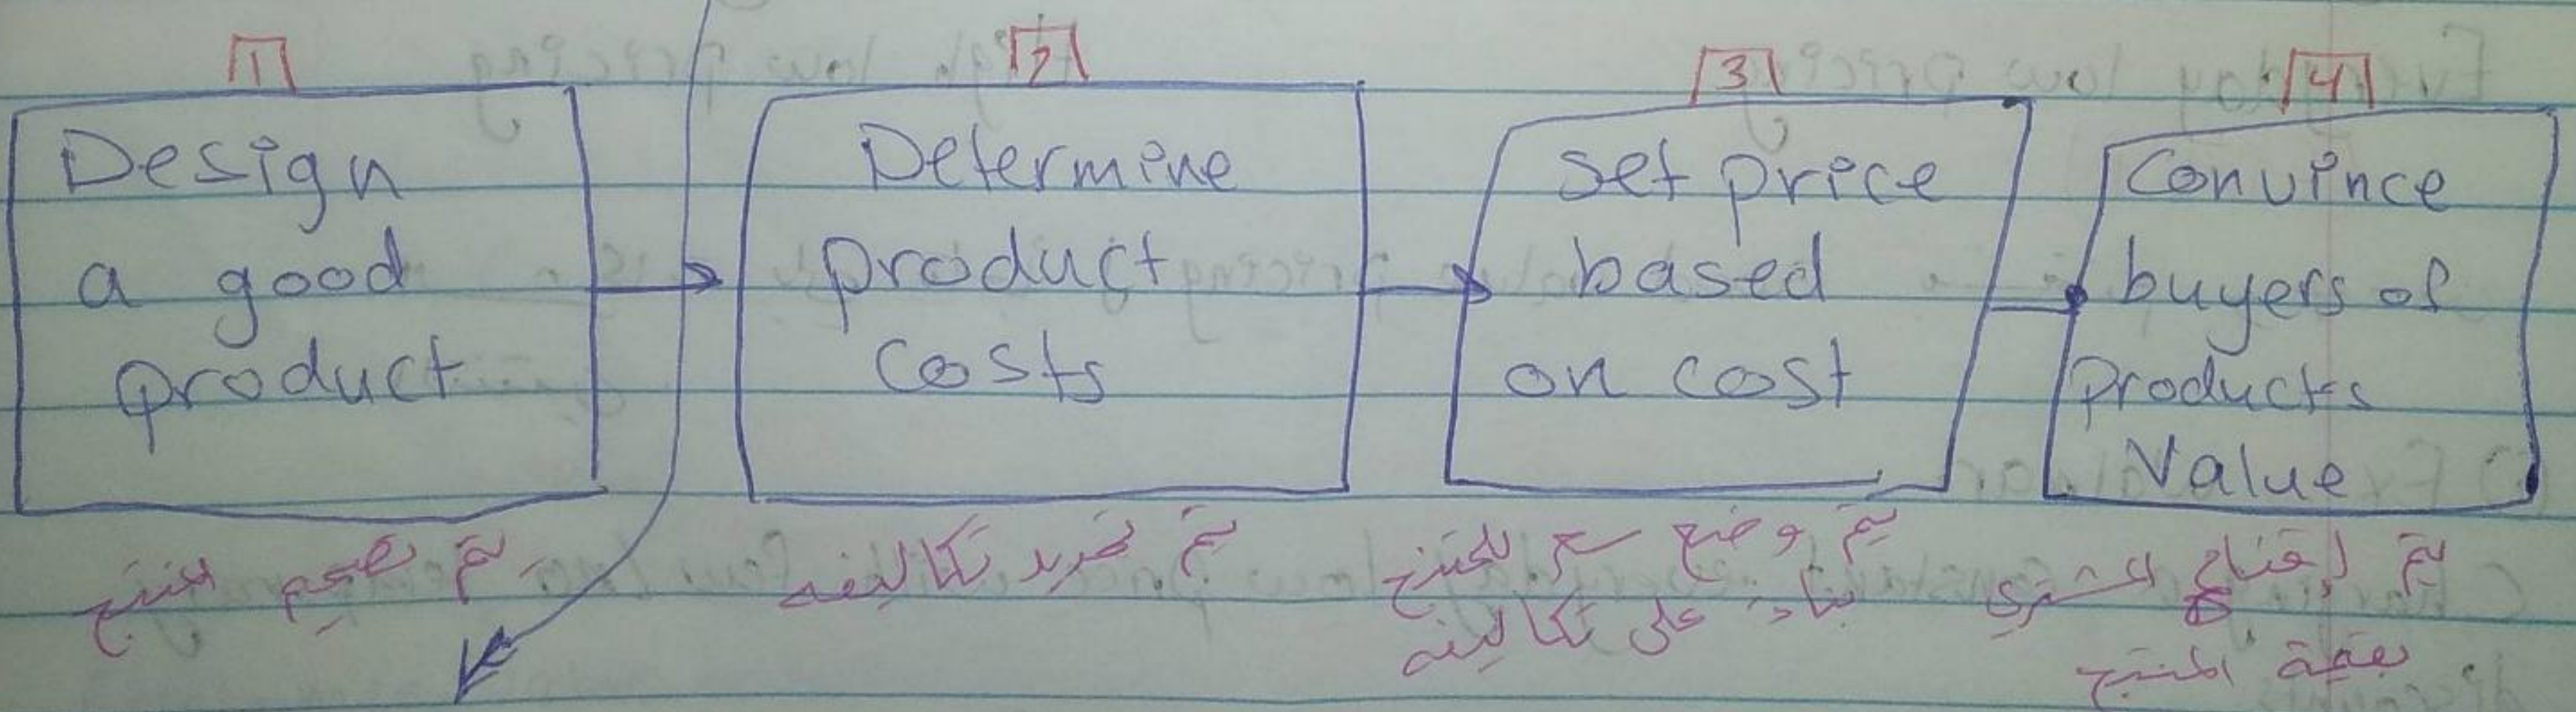 1
Design
a good
product
يتم تصميم المنتج
2
Determine
product
costs
يتم تحديد تكاليفه
3
set price
based
on cost
يتم وضع سعر للمنتج
بناء على تكاليفه
4
Convince
buyers of
products
Value
يتم إقناع المشتري
بقيمة المنتج